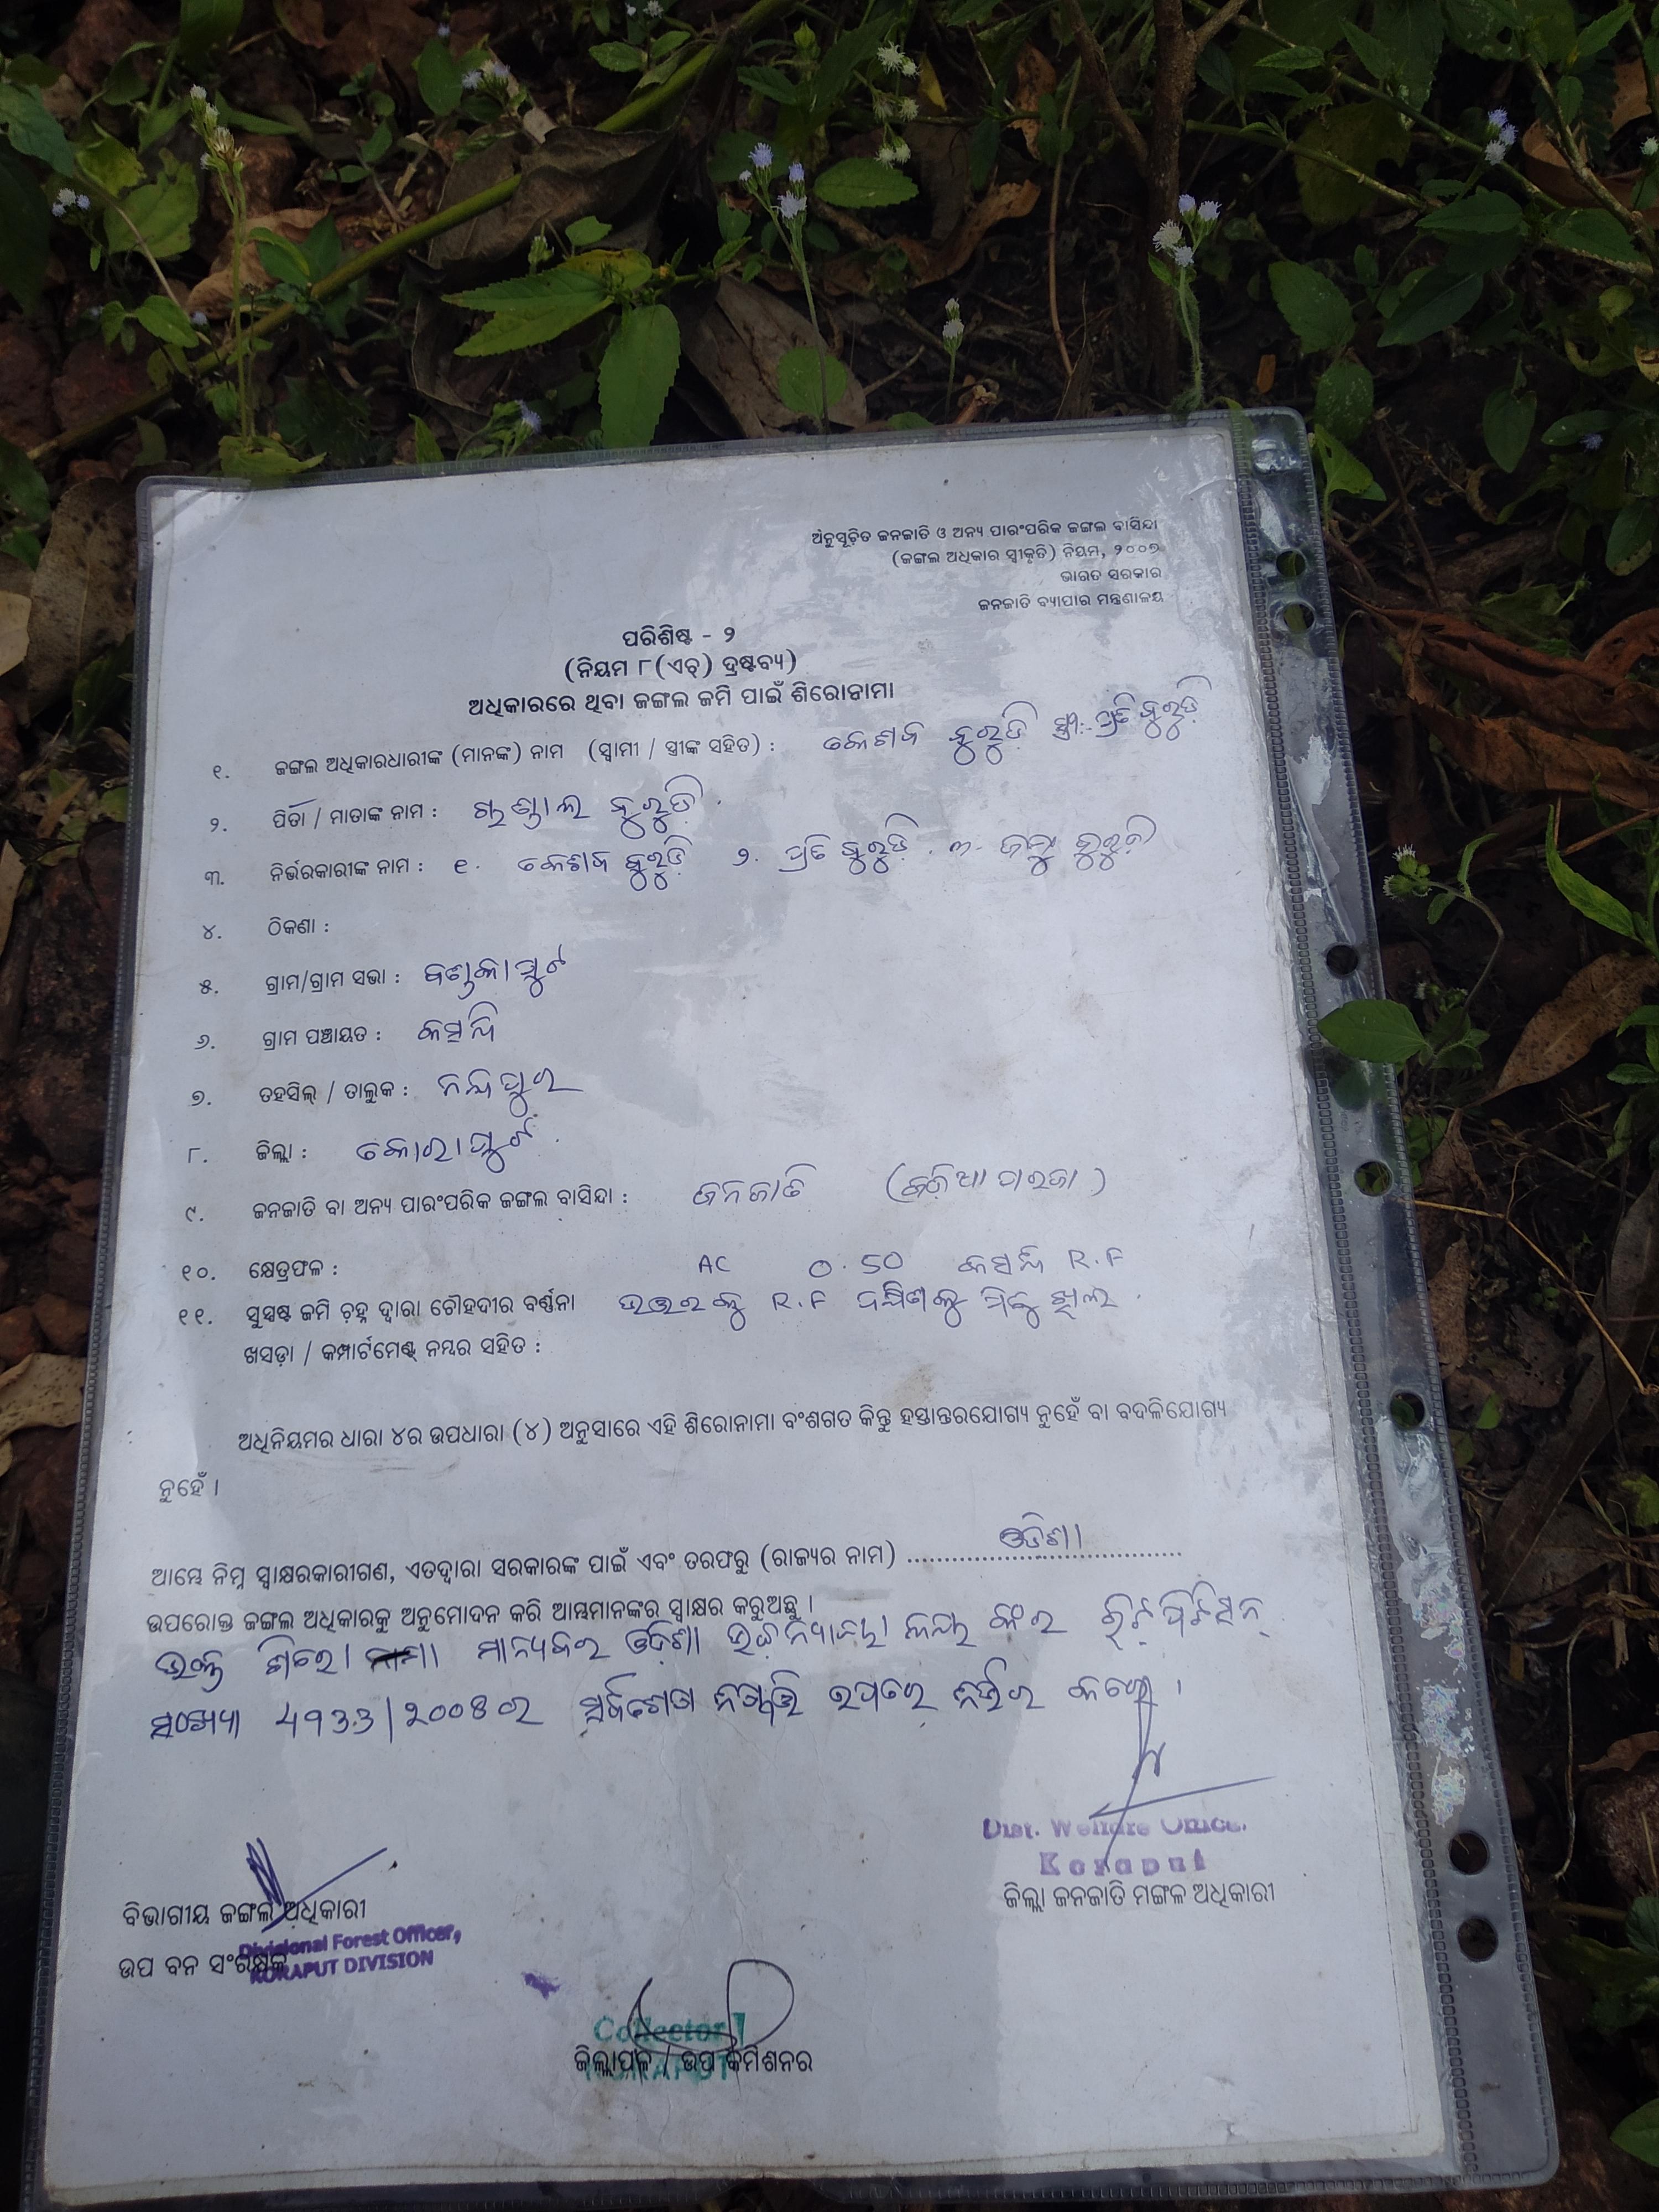 ଅନୁସୂଚିତ ଜନଜାତି ଓ ଅନ୍ୟ ପାରଂପରିକ ଜଙ୍ଗଲ ବାସିନ୍ଦା
(ଜଙ୍ଗଲ ଅଧିକାର ସ୍ୱୀକୃତି) ନିୟମ, ୨୦୦୭
ଭାରତ ସରକାର
ଜନଜାତି ବ୍ୟାପାର ମନ୍ତ୍ରଣାଳୟ
ପରିଶିଷ୍ଟ - ୨
(ନିୟମ ୮(ଏଚ୍) ଦ୍ରଷ୍ଟବ୍ୟ)
ଅଧିକାରରେ ଥିବା ଜଙ୍ଗଲ ଜମି ପାଇଁ ଶିରୋନାମା
୧. ଜଙ୍ଗଲ ଅଧିକାରଧାରୀଙ୍କ (ମାନଙ୍କ) ନାମ (ସ୍ୱାମୀ / ସ୍ତ୍ରୀଙ୍କ ସହିତ) : କେଶବ ହୁରୁଡ଼ି ସ୍ତ୍ରୀ:- ପ୍ରତି ହୁରୁଡ଼ି
୨. ପିତା / ମାତାଙ୍କ ନାମ : ହୁରୁଡ଼ି
୩. ନିର୍ଭରକାରୀଙ୍କ ନାମ : ୧. କେଶବ ହୁରୁଡ଼ି ୨. ପ୍ରତି ହୁରୁଡ଼ି . ୩. ହୁରୁଡ଼ି
୪. ଠିକଣା :
୫. ଗ୍ରାମ/ଗ୍ରାମ ସଭା :
୬. ଗ୍ରାମ ପଞ୍ଚାୟତ :
୭. ତହସିଲ୍ / ତାଲୁକ : ନନ୍ଦପୁର
୮. ଜିଲ୍ଲା : କୋରାପୁଟ
୯. ଜନଜାତି ବା ଅନ୍ୟ ପାରଂପରିକ ଜଙ୍ଗଲ ବାସିନ୍ଦା : ଜନଜାତି
୧୦. କ୍ଷେତ୍ରଫଳ : AC 0.50 R.F
୧୧. ସୁସ୍ପଷ୍ଟ ଜମି ଚିହ୍ନ ଦ୍ୱାରା ଚୌହଦୀର ବର୍ଣ୍ଣନା ଉତ୍ତରକୁ R.F ଦକ୍ଷିଣକୁ
ଖସଡ଼ା / କମ୍ପାର୍ଟମେଣ୍ଟ୍ ନମ୍ବର ସହିତ :
ଅଧିନିୟମର ଧାରା ୪ର ଉପଧାରା (୪) ଅନୁସାରେ ଏହି ଶିରୋନାମା ବଂଶଗତ କିନ୍ତୁ ହସ୍ତାନ୍ତରଯୋଗ୍ୟ ନୁହେଁ ବା ବଦଳିଯୋଗ୍ୟ
ନୁହେଁ ।
ଆମ୍ଭେ ନିମ୍ନ ସ୍ୱାକ୍ଷରକାରୀଗଣ, ଏତଦ୍ୱାରା ସରକାରଙ୍କ ପାଇଁ ଏବଂ ତରଫରୁ (ରାଜ୍ୟର ନାମ) ଓଡିଶା
ଉପରୋକ୍ତ ଜଙ୍ଗଲ ଅଧିକାରକୁ ଅନୁମୋଦନ କରି ଆମ୍ଭମାନଙ୍କର ସ୍ୱାକ୍ଷର କରୁଅଛୁ ।
ଉକ୍ତ ମାନ୍ୟବର ଓଡ଼ିଶା ଉଚ୍ଚ ନ୍ୟାୟାଳୟଙ୍କର ରିଟ୍ ପିଟିସନ୍
ସଂଖ୍ୟା ଉପରେ ନିର୍ଭର କରେ ।
Dist. Welfare Officer
Koraput
ଜିଲ୍ଲା ଜନଜାତି ମଙ୍ଗଳ ଅଧିକାରୀ
ବିଭାଗୀୟ ଜଙ୍ଗଲ ଅଧିକାରୀ
Divisional Forest Officer,
ଉପ ବନ ସଂରକ୍ଷକ
KORAPUT DIVISION
Collector
ଜିଲ୍ଲାପାଳ / ଉପ କମିଶନର